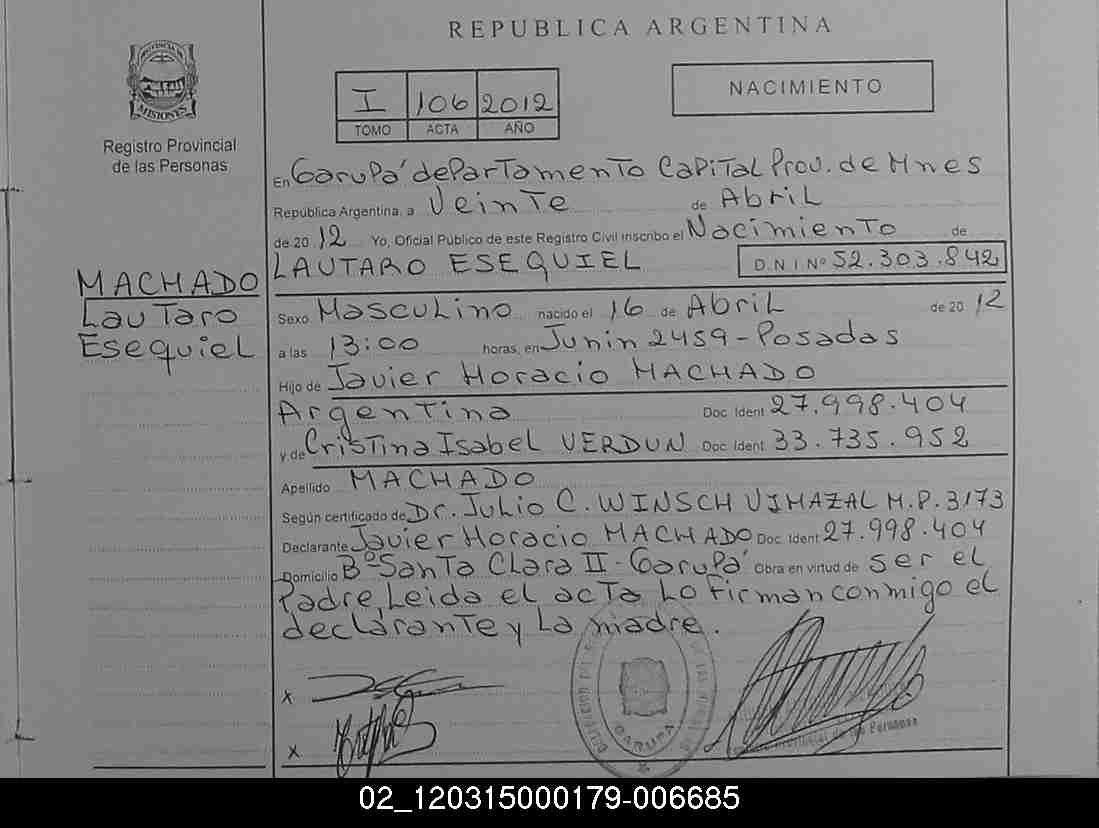 REPUBLICA ARGENTINA
PROVINCIA DE MISIONES
Registro Provincial
de las Personas
I 106 2012
TOMO ACTA AÑO
NACIMIENTO
En Garupá departamento Capital Prov. de Mnes
República Argentina, a Veinte de Abril
de 2012 Yo, Oficial Público de este Registro Civil inscribo el Nacimiento de
LAUTARO ESEQUIEL D.N.I. Nº 52.303.842
MACHADO
Lautaro
Esequiel
Sexo Masculino nacido el 16 de Abril de 2012
a las 13:00 horas, en Junin 2459-Posadas
Hijo de Javier Horacio MACHADO
Argentina Doc Ident 27.998.404
y de Cristina Isabel VERDUN Doc Ident 33.735.952
Apellido MACHADO
Según certificado de Dr. Julio C. WINSCH VIMAZAL M.P. 3173
Declarante Javier Horacio MACHADO Doc Ident 27.998.404
Domicilio Bº Santa Clara II - Garupá Obra en virtud de ser el
Padre, Leida el acta Lo Firman conmigo el
declarante y La madre.
x
x
GARUPA
Provincial de las Personas
02_120315000179-006685